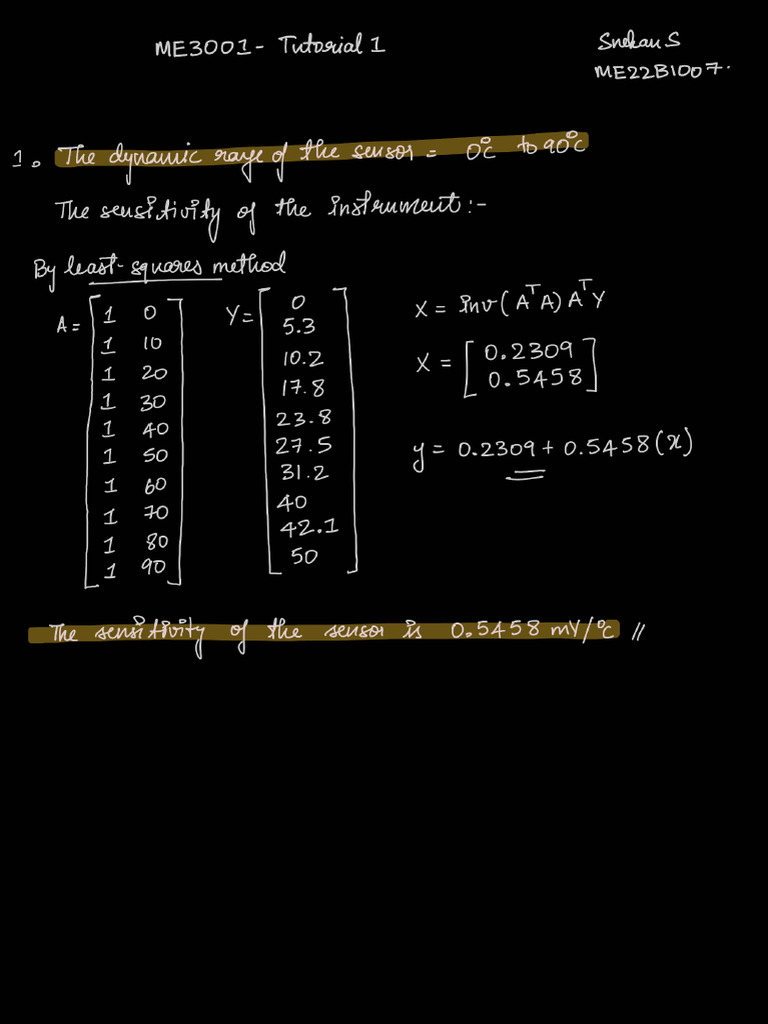 ME3001 - Tutorial 1
Snekan S
ME22B1007.
1. The dynamic range of the sensor = 0°C to 90°C
The sensitivity of the instrument :-
By least-squares method
A = [1 0
1 10
1 20
1 30
1 40
1 50
1 60
1 70
1 80
1 90]
Y = [0
5.3
10.2
17.8
23.8
27.5
31.2
40
42.1
50]
X = inv(AᵀA)AᵀY
X = [0.2309
0.5458]
y = 0.2309 + 0.5458(x)
The sensitivity of the sensor is 0.5458 mV/°C //